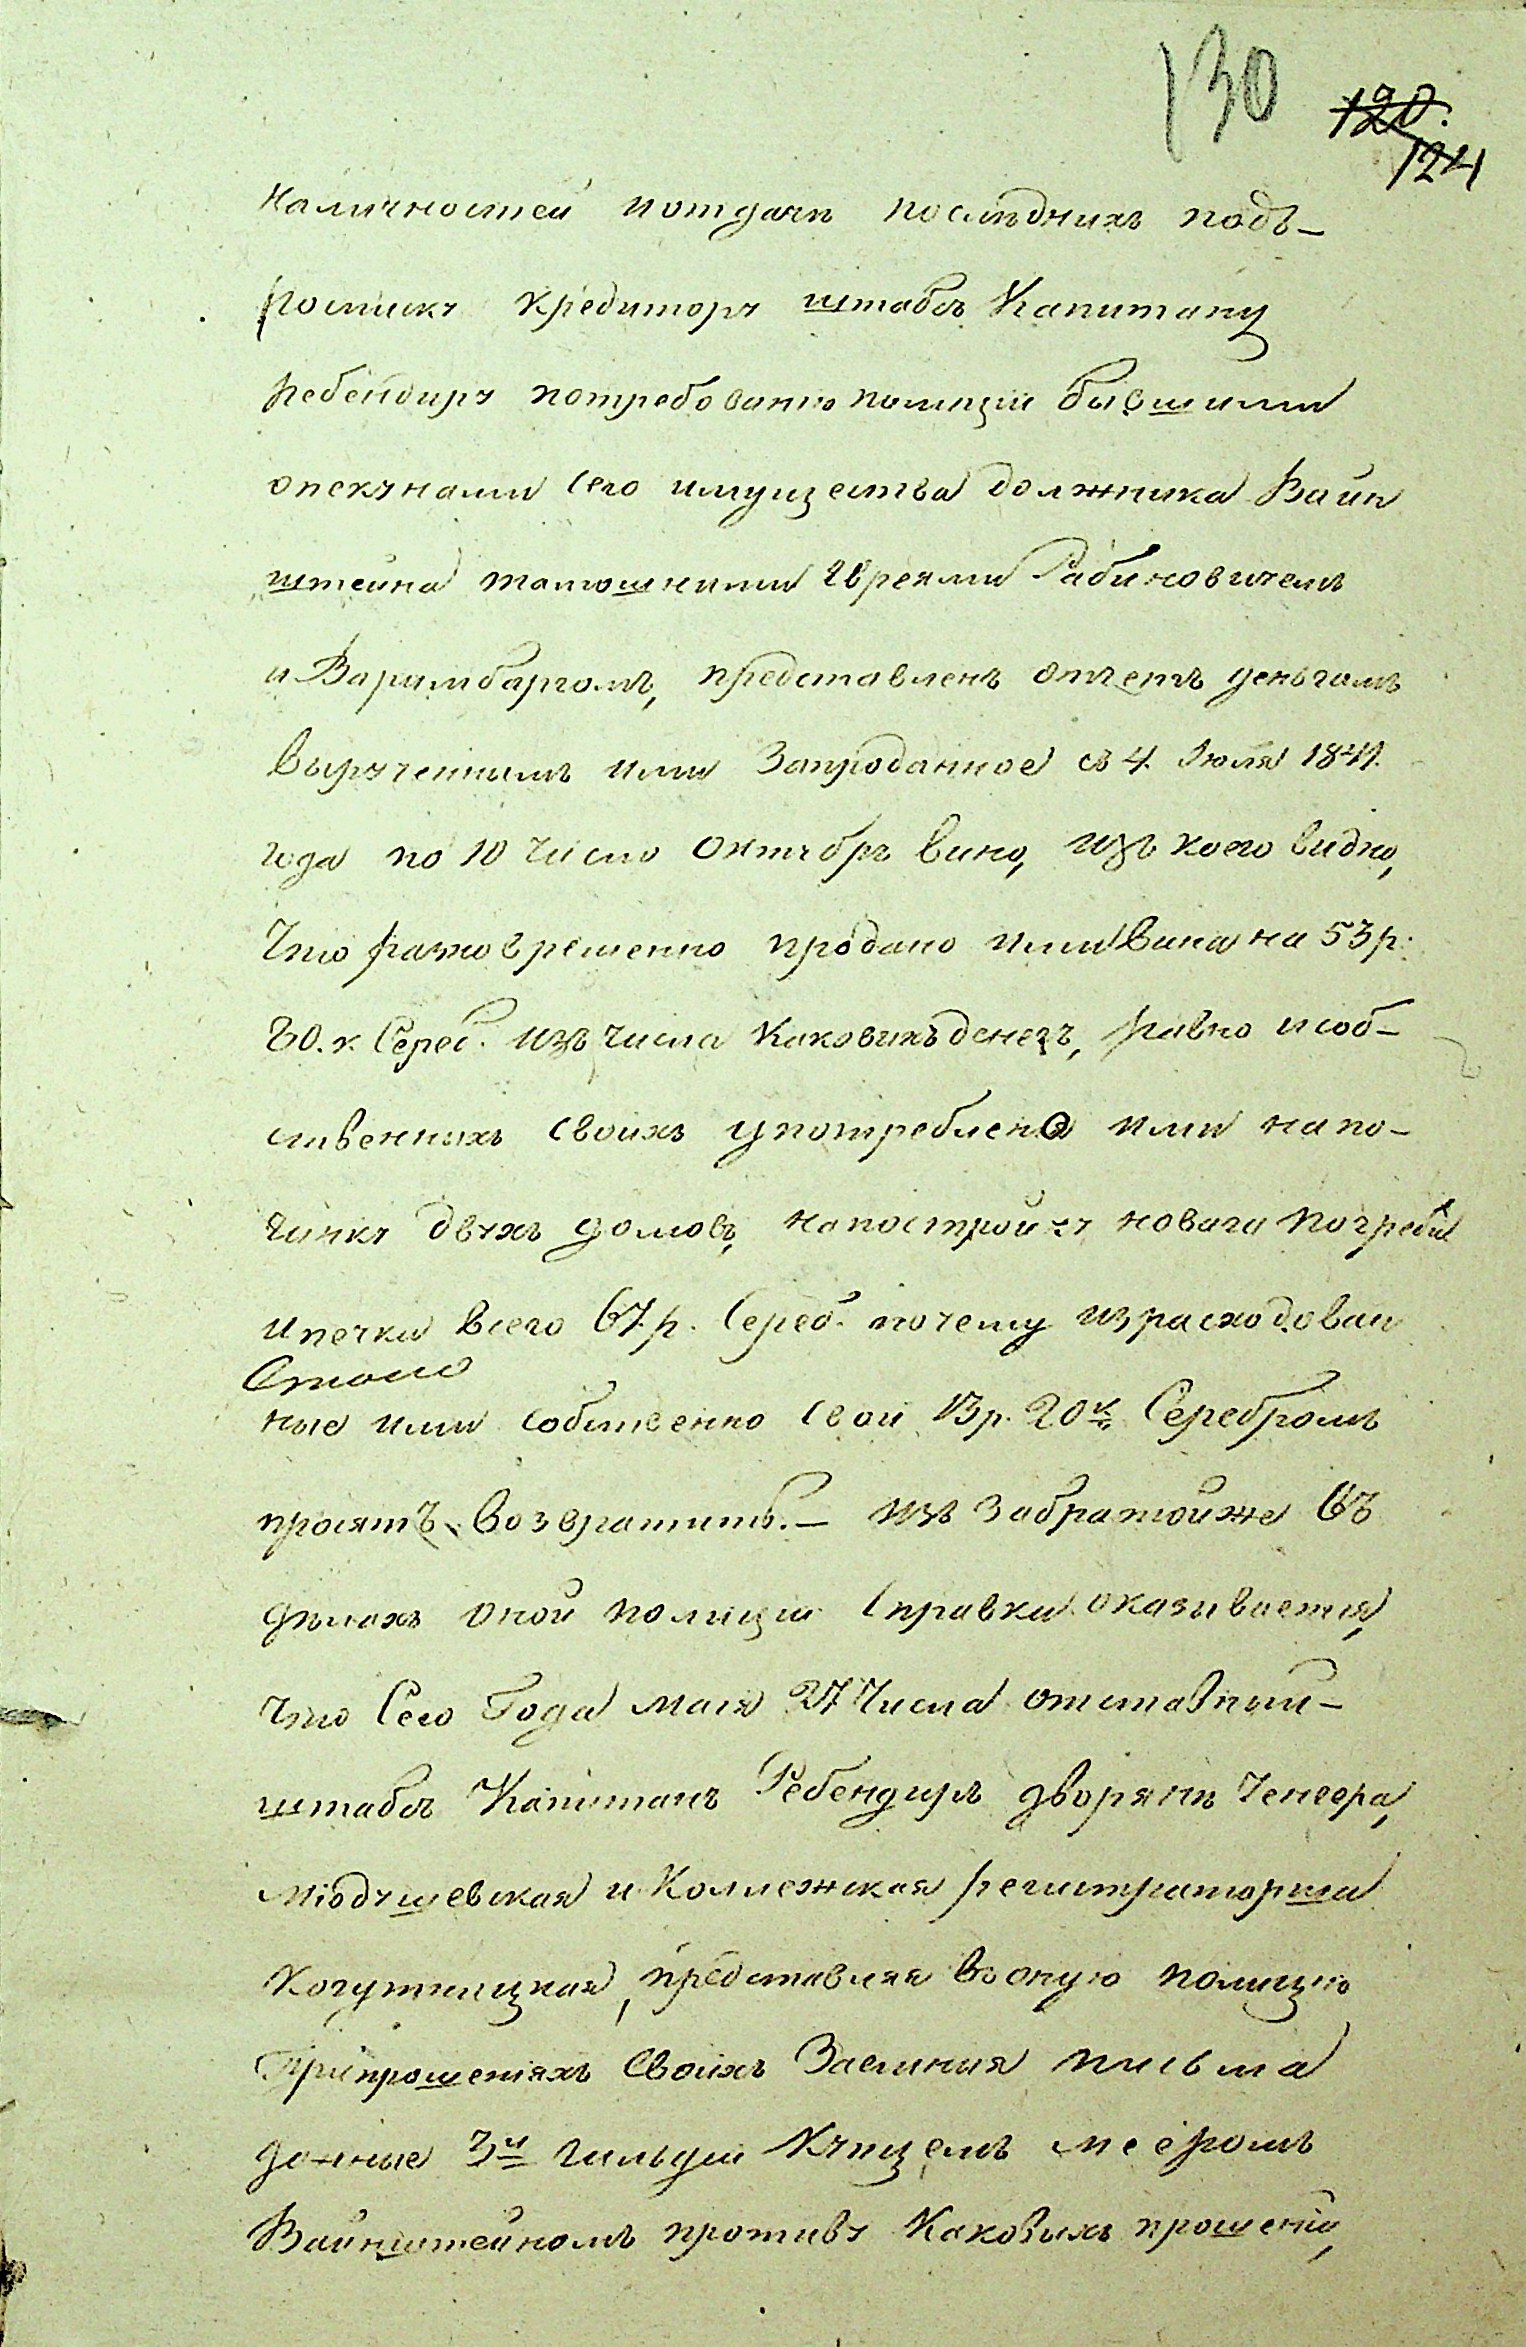 130
120.
124
наличностей и отдачѣ послѣднихъ подъ-
росписку кредитору штабсъ Капитану
Ребендиру потребованію полиціи бывшими
опекунами сего имущества должника Вайн
штейна тамошними Евреями Рабиновичемъ
и Варимбаргомъ, представленъ отчетъ деньгамъ
вырученнымъ ими запроданное съ 4. Іюля 1841.
года по 10 число Октября вино, изъ коего видно,
что разновременно продано ими вина на 53 р:
80. к. Сереб. изъ числа каковыхъ денегъ, равно и соб-
ственныхъ своихъ употреблено ими на по-
чинку двухъ домовъ, на постройку новаго погреба
и печки всего 67. р. Сереб. почему израсходован
ные ими собственно свои 13 р. 20 к. Серебромъ
просятъ возвратить. – изъ забратой же въ
дѣлахъ оной полиціи справки оказывается,
что Сего Года мая 27 числа отставный-
штабсъ Капитанъ Ребендиръ дворянѣ Ченгера,
Мюдушевская и Коллежская регистраторша
Когутницкая, представляя въ оную полицію
при прошеніяхъ своихъ Заемныя письма
данные 3й гильдіи Купцемъ Мееромъ
Вайнштейномъ противу каковыхъ прошеній,